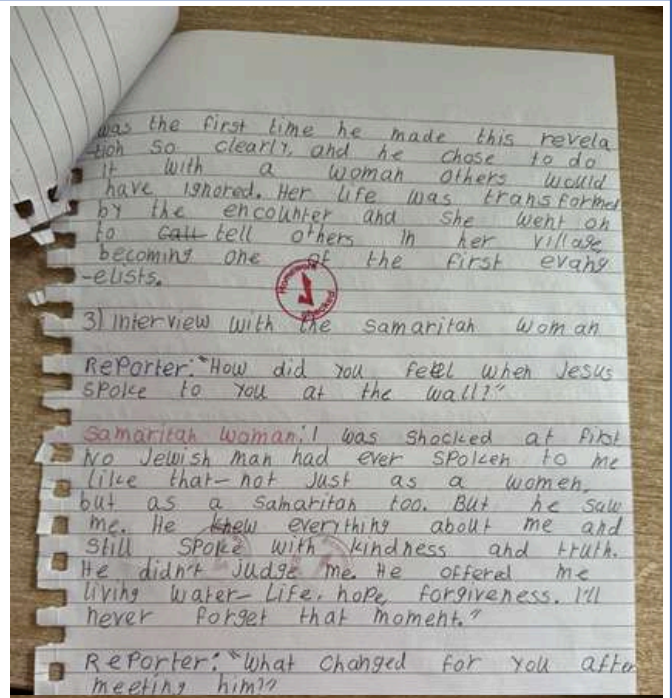 was the first time he made this revela
-tion so clearly, and he chose to do
it with a woman others would
have ignored. Her life was transformed
by the encounter and she went on
to call tell others in her village
becoming one of the first evang
-elists.
Homework
Checked
3) Interview with the Samaritan woman
Reporter: "How did you feel when Jesus
spoke to you at the wall?"
Samaritan woman: I was shocked at first
No Jewish man had ever spoken to me
like that- not just as a women,
but as a Samaritan too. But he saw
me. He knew everithing about me and
still spoke with kindness and truth.
He didn't judge me. He offered me
living water- Life, hope, forgiveness. I'll
never forget that moment."
Reporter: "What changed for you after
meeting him?"